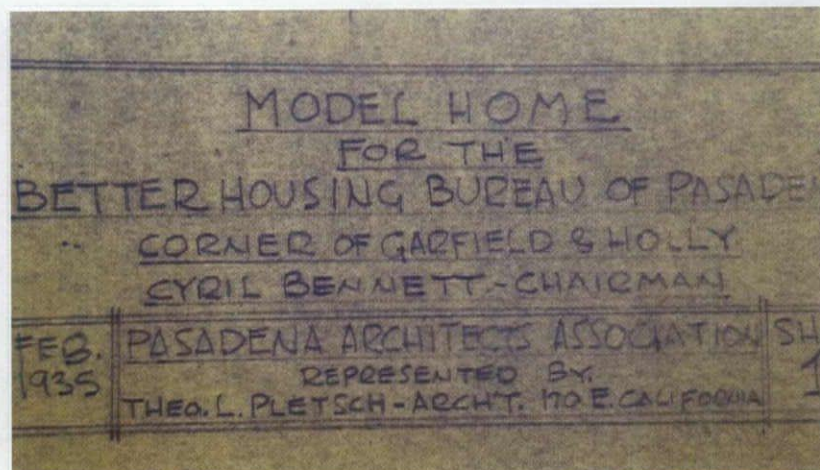 MODEL HOME
FOR THE
BETTER HOUSING BUREAU OF PASADE
CORNER OF GARFIELD & HOLLY
CYRIL BENNETT - CHAIRMAN
FEB.
1935
PASADENA ARCHITECTS ASSOCIATION
REPRESENTED BY.
THEO. L. PLETSCH - ARCHT. 170 E. CALIFORNIA
SH
1